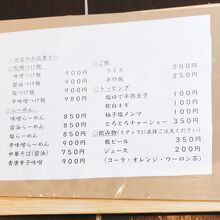 ～当店のお品書き～
○札幌つけ麺
つけ麺 900円
味噌つけ麺 900円
醤油つけ麺 900円
塩つけ麺 900円
辛味噌つけ麺 980円
○らーめん
味噌らーめん 850円
醤油らーめん 850円
塩らーめん 850円
辛味噌らーめん 950円
中華そば(醤油) 750円
青唐辛子味噌 950円
○ご飯
ライス 200円
半炒飯 250円
○トッピング
塩ゆで半熟玉子
飲白ネギ 100円
柚子塩メンマ 100円
とろとろチャーシュー 350円
○飲み物(スタッフに直接ご注文ください)
瓶ビール 350円
ジュース 200円
(コーラ・オレンジ・ウーロン茶)